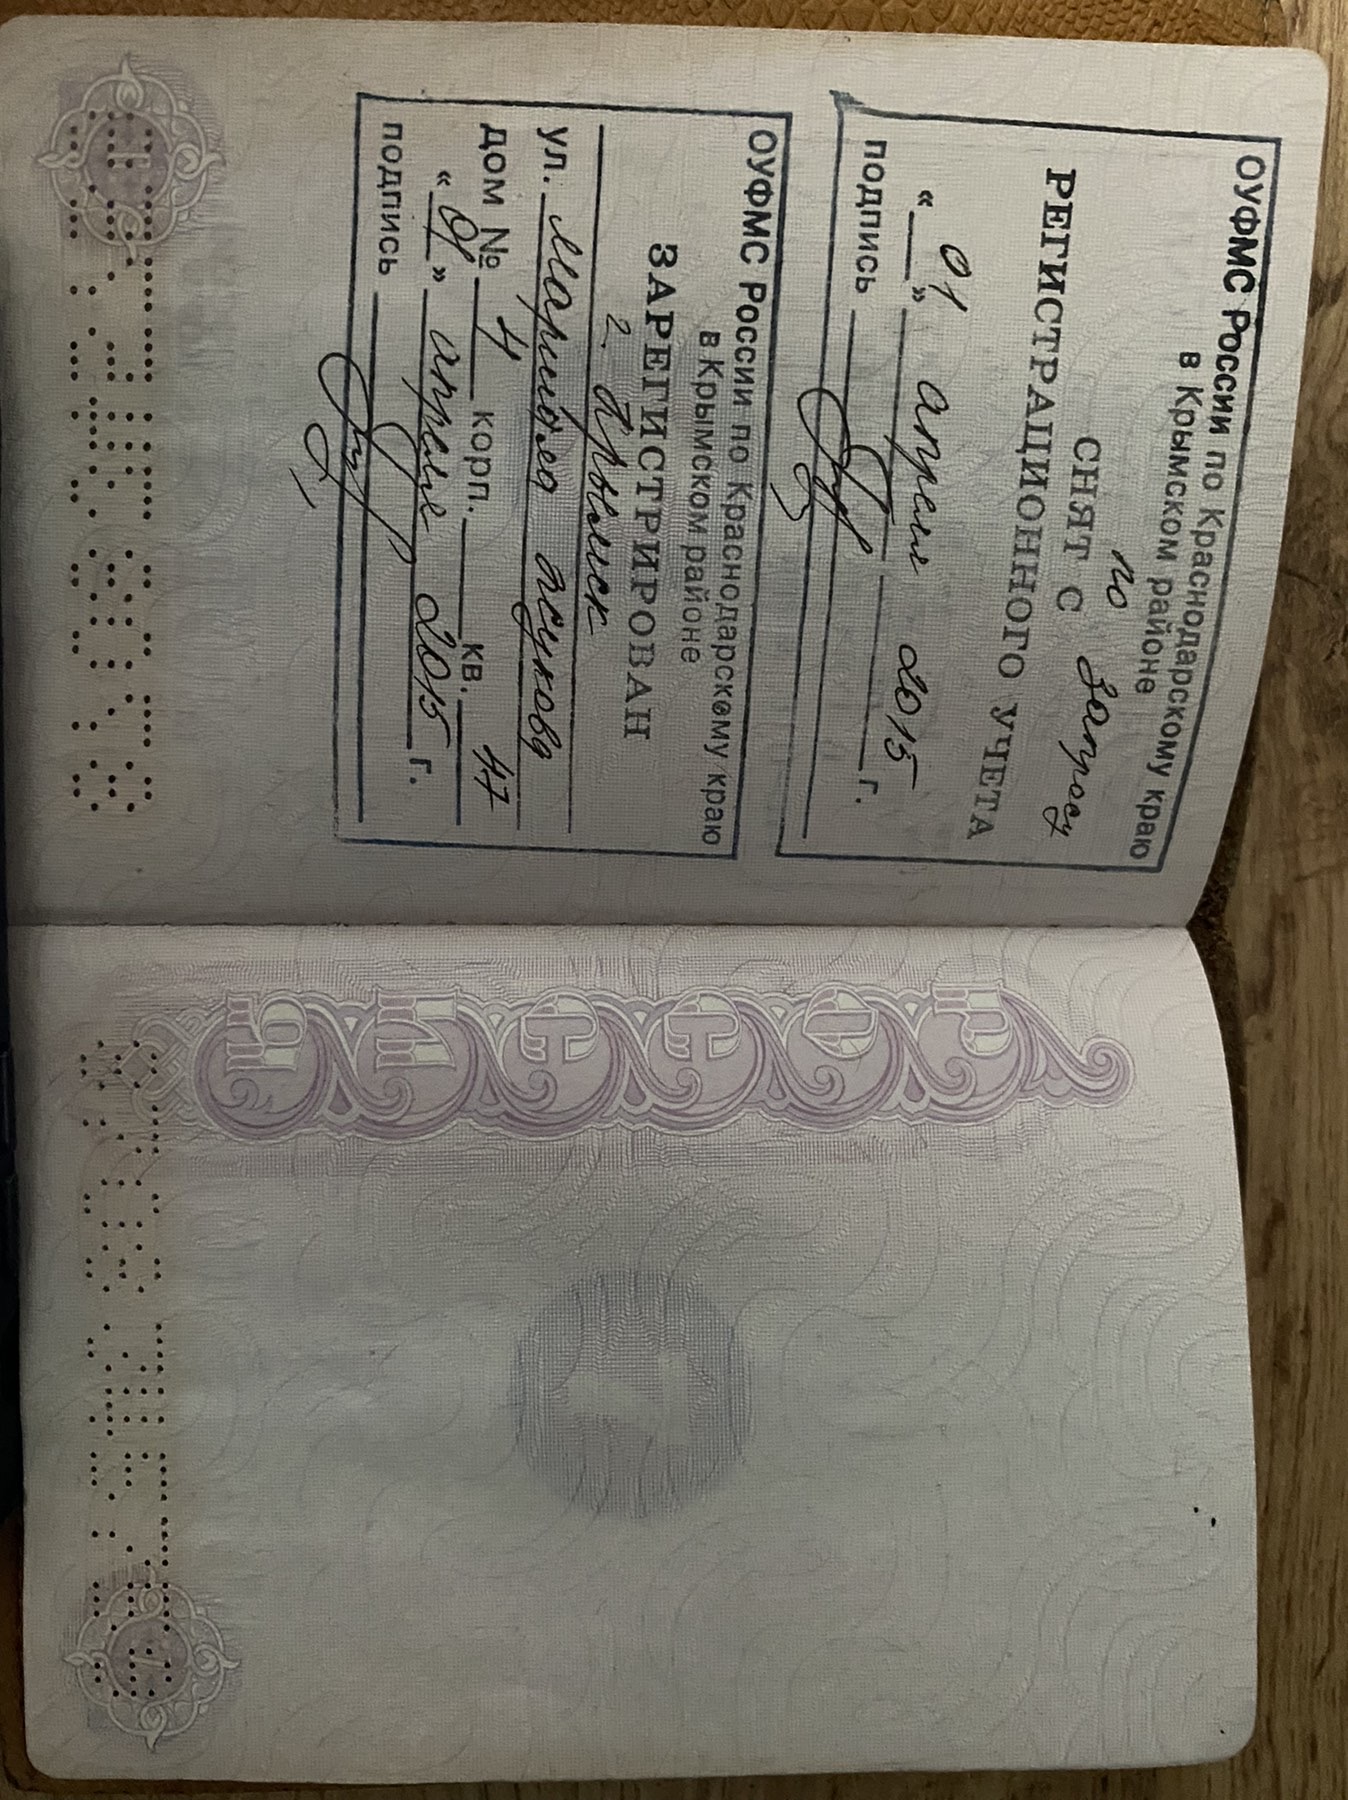 ОУФМС России по Краснодарскому краю
в Крымском районе
по запросу
СНЯТ С
РЕГИСТРАЦИОННОГО УЧЕТА
« 01 » апреля 2015 г.
подпись
ОУФМС России по Краснодарскому краю
в Крымском районе
ЗАРЕГИСТРИРОВАН
г. Крымск
ул. Маршала Жукова
ДОМ № 4 корп. кв. 47
« 01 » апреля 2015 г.
подпись
РОССИЯ